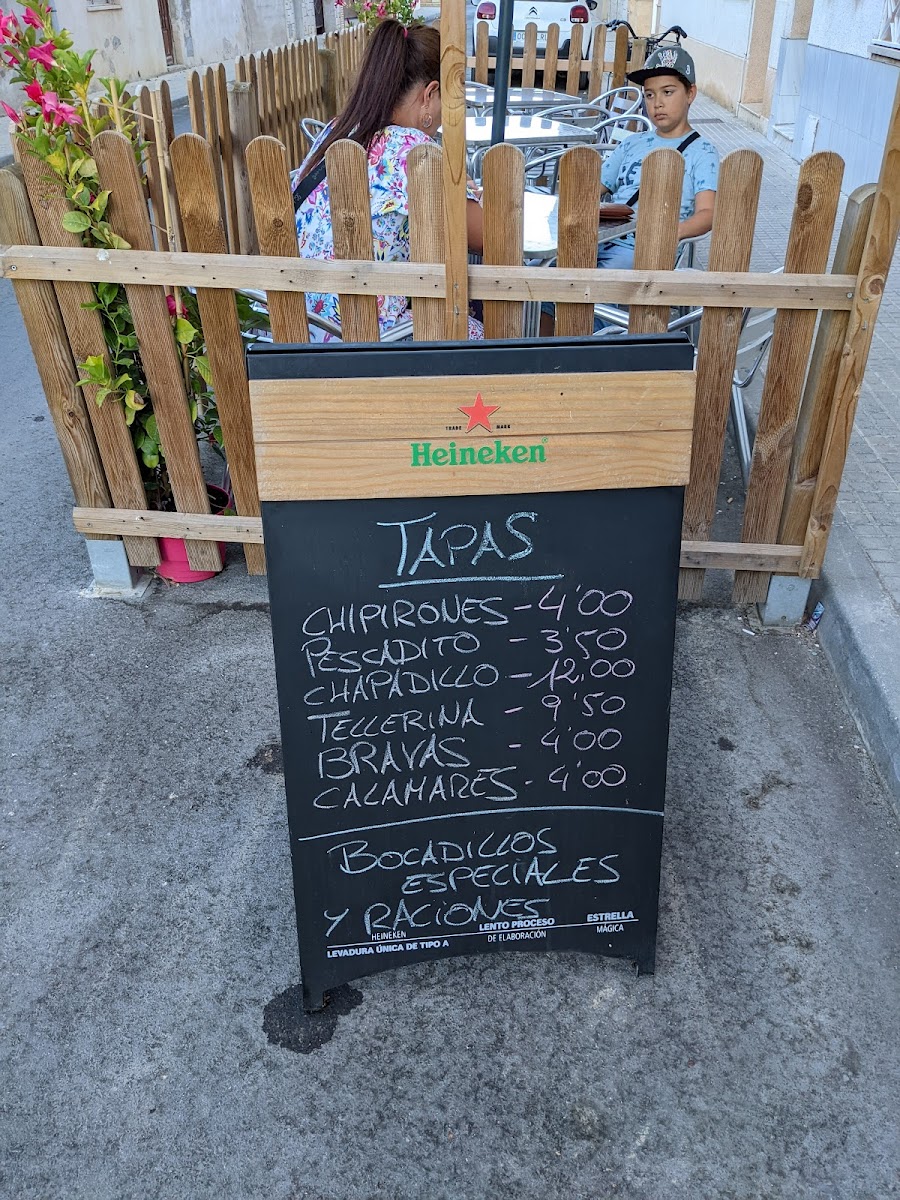 TRADE MARK
Heineken
TAPAS
CHIPIRONES - 4'00
PESCADITO - 3'50
CHAPADILLO - 12'00
TELLERINA - 9'50
BRAVAS - 4'00
CALAMARES - 4'00
BOCADILLOS
ESPECIALES
Y RACIONES
HEINEKEN
LEVADURA ÚNICA DE TIPO A
LENTO PROCESO
DE ELABORACIÓN
ESTRELLA
MÁGICA